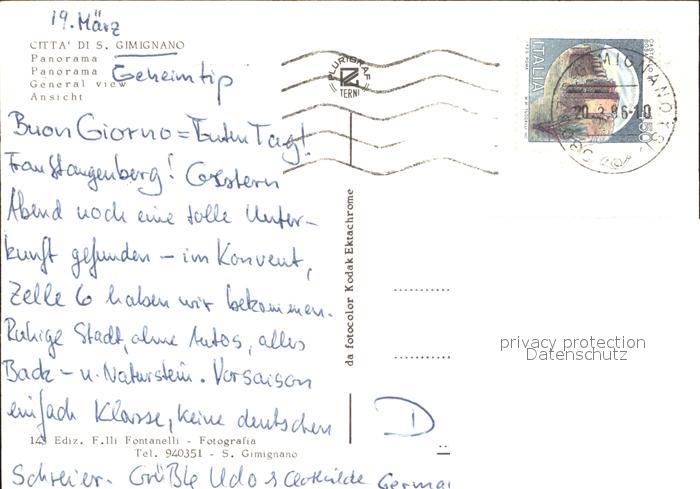 19. März
CITTA' DI S. GIMIGNANO
Panorama
Panorama
General view
Ansicht
Geheimtip
Buon Giorno = Guten Tag!
Frau Stangenberg! Gestern
Abend noch eine tolle Unter-
kunft gefunden – im Konvent,
Zelle 6 haben wir bekommen.
Ruhige Stadt, ohne Autos, alles
Back- u. Naturstein. Vorsaison
einfach Klasse, keine deutschen
143 Ediz. F.lli Fontanelli - Fotografia
Tel. 940351 - S. Gimignano
Schreier. Grüßle Udo & Clothilde
PLURIGRAF
TERNI
da fotocolor Kodak Ektachrome
ITALIA
GIMIGNANO
20.3.86-10
D
Germa
privacy protection
Datenschutz